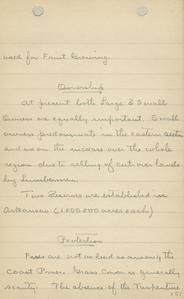 used for Fruit Growing.
Ownership
At present both Large & Small
Owners are equally important. Small
owners predominate in the eastern section
and are on the increase over the whole
region due to selling of cut-over lands
by Lumbermen.
Two Reserves are established in
Arkansas (1 500 000 acres each)
Protection
Fires are not as bad as among the
Coast Pines. Grass Cover is generally
scanty. The absence of the Turpentine